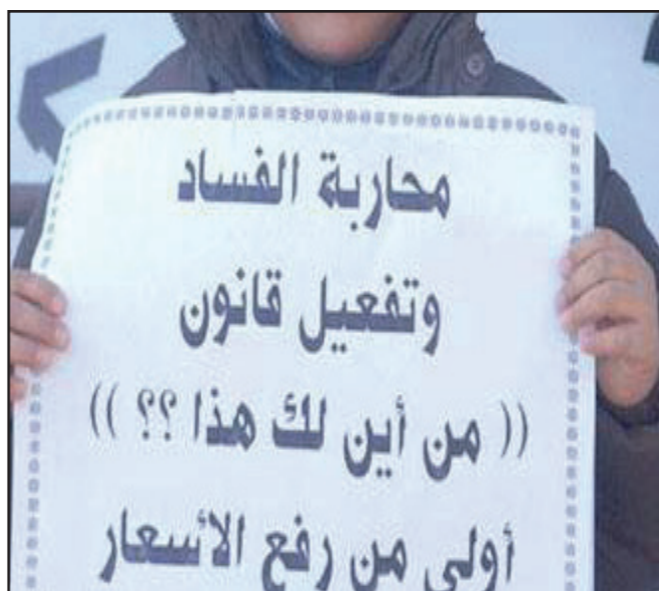 محاربة الفساد
وتفعيل قانون
(( من أين لك هذا ؟؟ ))
أولى من رفع الأسعار